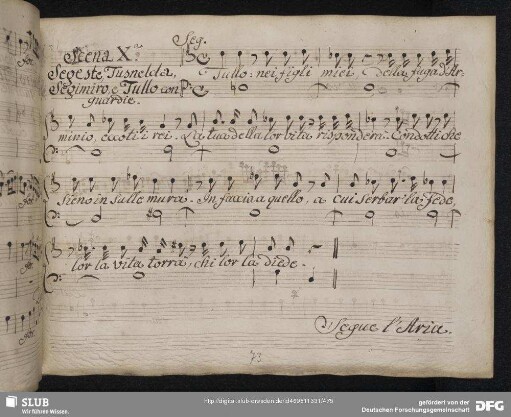 Scena X.a Seg.
Segeste, Tusnelda,
Segimiro, e Tullo con
guardie.
Tullo: nei figli miei, della fuga d'Ar-
minio, eccoti i rei. La tua della lor vita risponderà. Condotti che
sieno in sulle mura. In faccia a quello, a cui serbar la fede,
lor la vita torrà, chi lor la diede.
Segue l'Aria.
73
SLUB
Wir führen Wissen.
gefördert von der
Deutschen Forschungsgemeinschaft
DFG